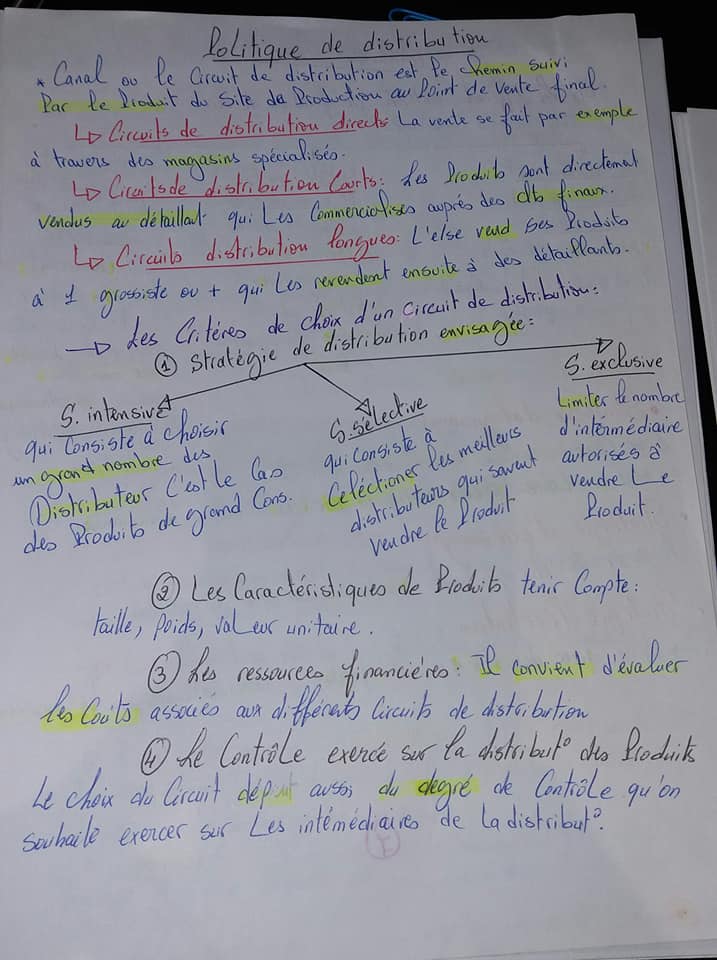 Politique de distribution
* Canal ou le Circuit de distribution est le chemin suivi
Par le Produit du Site de Production au Point de vente final.
↳ Circuits de distribution directs: La vente se fait par exemple
à travers des magasins spécialisés.
↳ Circuits de distribution Courts: Les Produits sont directemat
vendus au détaillant qui Les Commercialises auprés des clts finaux.
↳ Circuits distribution longues: L'else vend ses Produits
à 1 grossiste ou + qui Les revendent ensuite à des détaillants.
→ Les Critéres de choix d'un Circuit de distribution:
① Stratégie de distribution envisagée:
S. intensive
qui Consiste à choisir
un grand nombre des
Distributeur C'est le Cas
des Produits de grand Cons.
S. sélective
qui Consiste à
Celéctioner les meilleurs
distributeurs qui savent
vendre le Produit
S. exclusive
Limiter le nombre
d'intérmédiaire
autorisés à
vendre Le
Produit.
② Les Caractéristiques de Produits tenir Compte:
taille, Poids, valeur unitaire.
③ Les ressources financiéres: Il convient d'évaluer
les Coûts associés aux différents Circuits de distribution
④ Le Contrôle exercé sur la distribut° des Produits
Le choix du Circuit dépent aussi du degré de Contrôle qu'on
souhaite exercer sur Les intémédiaires de La distribut°.